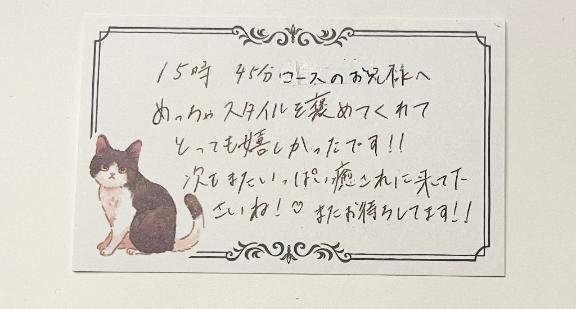 15時 45分コースのお兄様へ
めっちゃスタイルを褒めてくれて
とっても嬉しかったです!!
次もまたいっぱい癒されに来てた
さいね!♡ またお待ちしてます!!